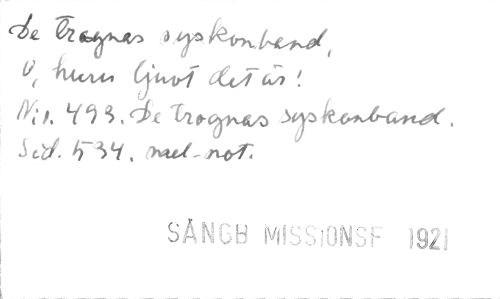 De trognas syskonband,
O, huru ljuvt det är!
N:r. 493. De trognas syskonband.
Sid. 534. mel-not.
SÅNGB MISSIONSF 1921